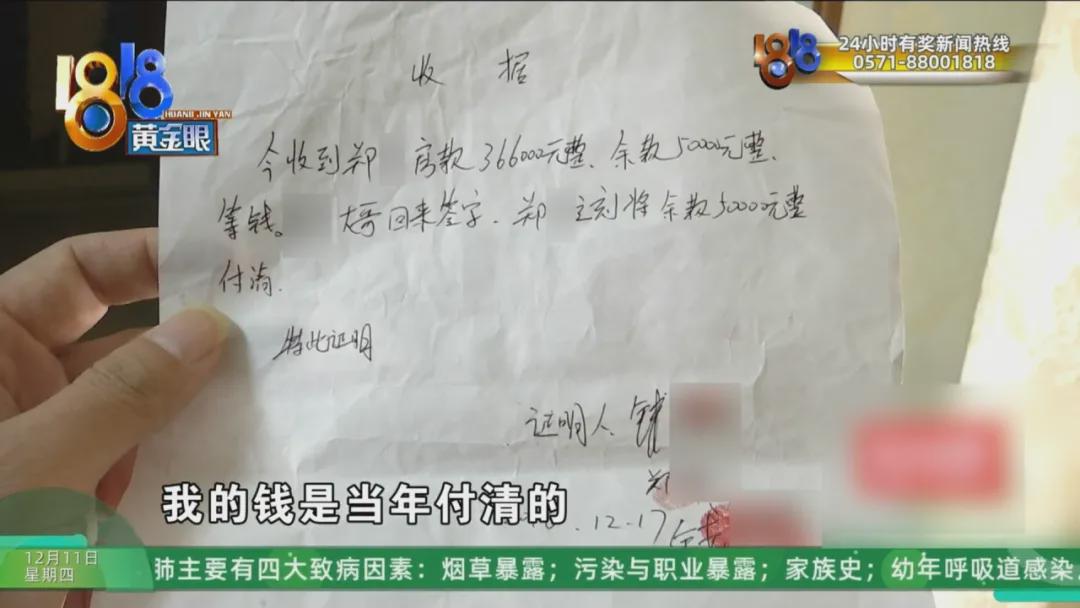 1818
HUANG JIN YAN
黄金眼
1818
24小时有奖新闻热线
0571-88001818
收 据
今收到郑 房款366000元整、余款50000元整、
等钱。 大哥回来签字、郑 立刻将余款50000元整
付清.
特此证明
证明人 钱
郑
.12.17
我的钱是当年付清的
12月11日
星期四
肺主要有四大致病因素：烟草暴露；污染与职业暴露；家族史；幼年呼吸道感染